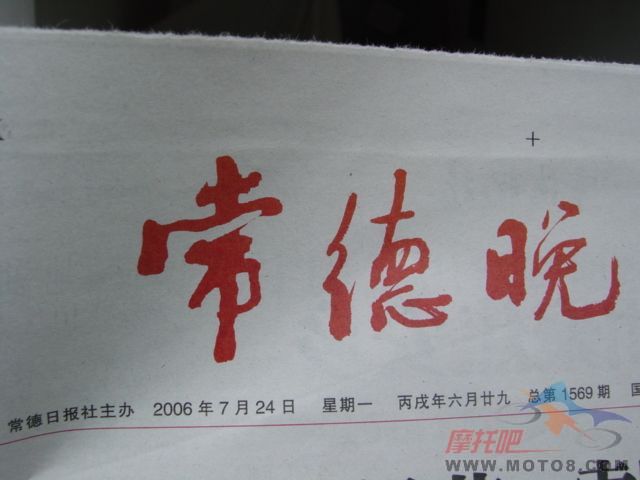 常德晚
常德日报社主办 2006年7月24日 星期一 丙戌年六月廿九 总第1569期 国
摩托吧
WWW.MOTO8.COM